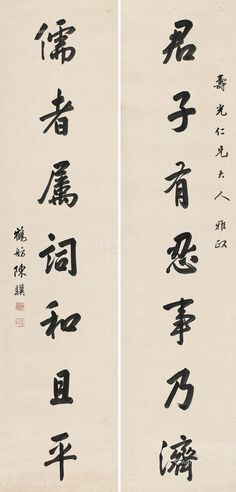 壽光仁兄大人雅政
君子有忍事乃濟
儒者属詞和且平
鶴舫陳騏